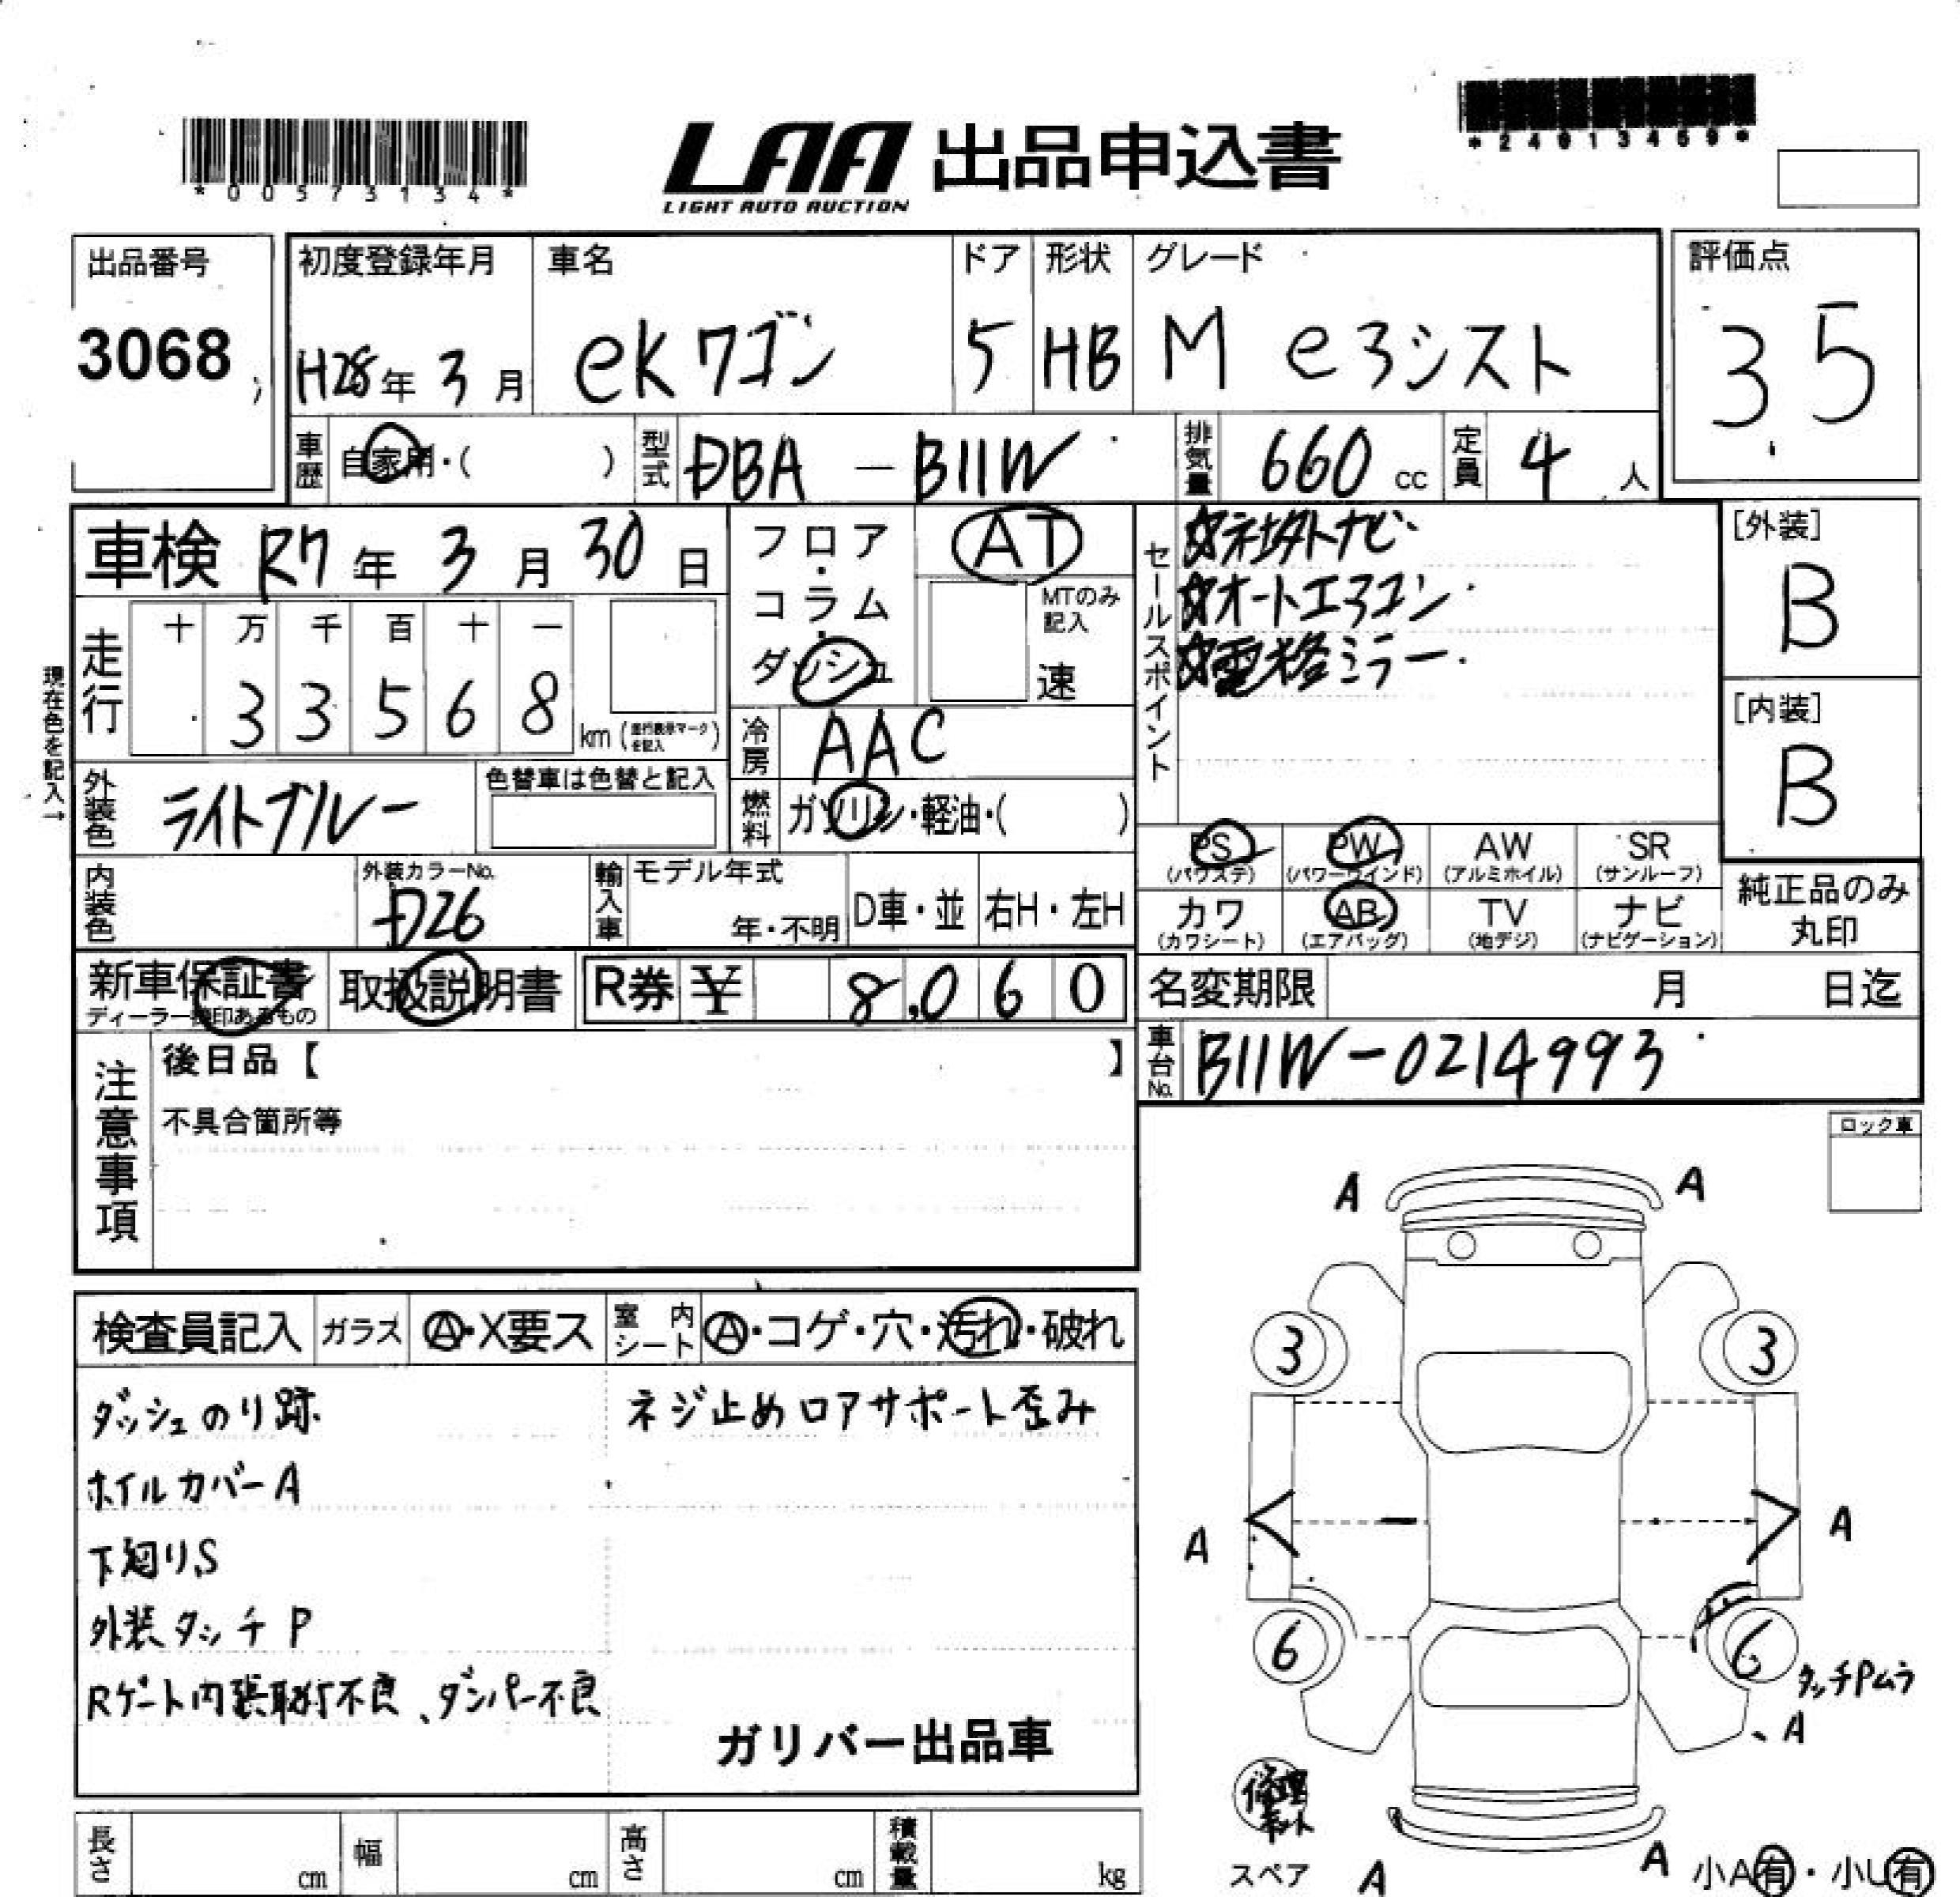 *00573134*
LAA 出品申込書
LIGHT AUTO AUCTION
*24013459*
出品番号
3068
初度登録年月
H28年 3月
車名
ekワゴン
ドア
5
形状
HB
グレード
M eアシスト
評価点
3.5
車歴 自家用・( )
型式 DBA-B11W
排気量 660 cc
定員 4 人
車検 R7年 3月 30日
フロア・コラム・ダッシュ
AT
MTのみ記入
速
セールスポイント
☆社外ナビ
☆オートエアコン
☆電格ミラー
[外装]
B
[内装]
B
現在色を記入→
走行
十 万 千 百 十 一
3 3 5 6 8 km(走行表示マークを記入)
冷房 AAC
外装色 ライトブルー
色替車は色替と記入
燃料 ガソリン・軽油・( )
内装色
外装カラーNo.
D26
輸入車
モデル年式
年・不明
D車・並
右H・左H
PS (パワステ)
PW (パワーウインド)
AW (アルミホイル)
SR (サンルーフ)
カワ (カワシート)
AB (エアバッグ)
TV (地デジ)
ナビ (ナビゲーション)
純正品のみ丸印
新車保証書
ディーラー捺印あるもの
取扱説明書
R券 ¥ 8,060
名変期限 月 日迄
車台No. B11W-0214993
注意事項
後日品【 】
不具合箇所等
ロック車
検査員記入 ガラス A・X要ス
室内シート A・コゲ・穴・汚れ・破れ
ダッシュのり跡
ネジ止めロアサポート歪み
ホイルカバーA
下廻りS
外装タッチP
Rゲート内張取付不良、ダンパー不良
ガリバー出品車
A A
3 3
A A
6 6
タッチPムラ
A
修理キット
スペア
A A
小A有・小U有
長さ cm
幅 cm
高さ cm
積載量 kg